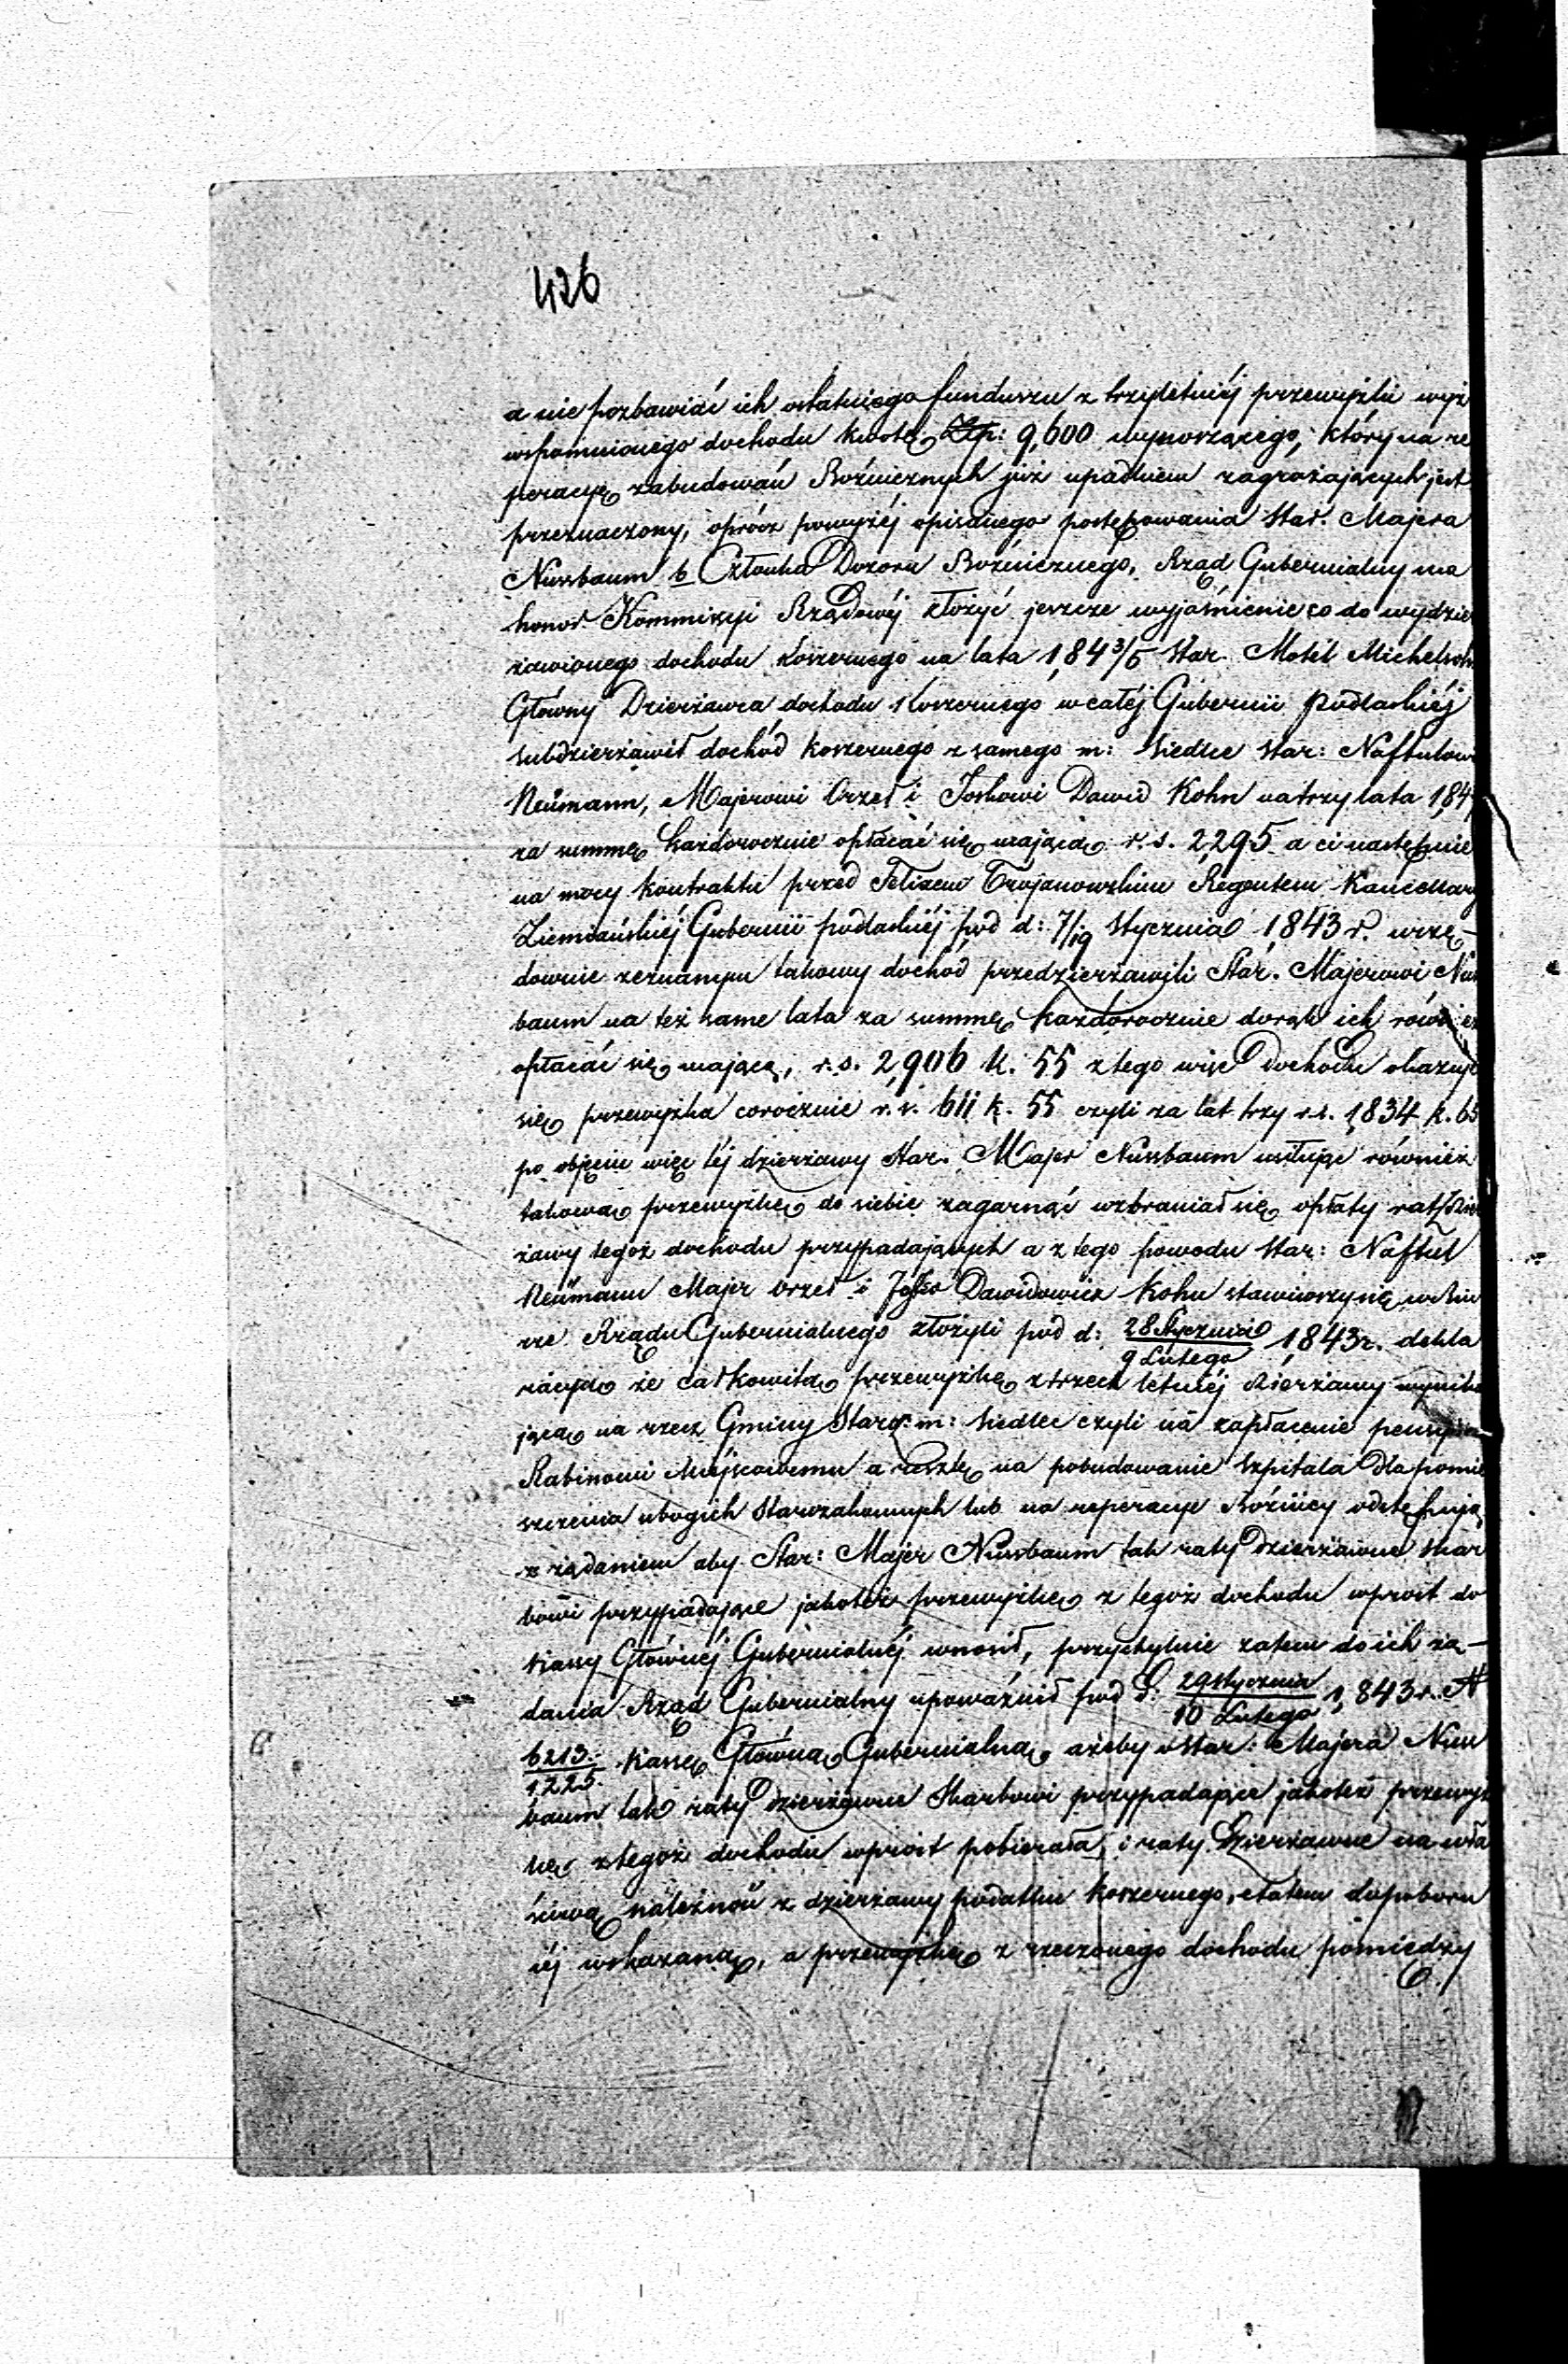 426
a nie pozbawiać ich ostatniego funduszu z trzyletniéj przewyżki wyż
wspomnionego dochodu kwotę Złp: 9,600 wynoszącego, który na re
peracyę zabudowań Bożnicznych już upadkiem zagrażających jest
przeznaczony, oprócz powyżéj opisanego postępowania Star. Majera
Nussbaum b Członka Dozoru Bożnicznego, Rząd Gubernialny ma
honor Kommissyi Rządowéj złożyć jeszcze wyjaśnienie co do wydzier
żawionego dochodu koszernego na lata 1,843/5 Star. Motel Michelsohn
Główny Dzierżawca dochodu koszernego w całéj Gubernii podlaskiéj
subdzierżawił dochód koszernego z samego m: Siedlce Star: Naftulowi
Neümann, Majerowi Orzeł i Joskowi Dawid Kohn na trzy lata 1,84
za summę każdorocznie opłacać się mającą r.s. 2,295 a ci następnie
na mocy kontraktu przed Felixem Trojanowskim Regentem Kancellary
Ziemiańskiéj Gubernii podlaskiéj pod d: 7/19 Stycznia 1,843 r. urzę-
downie zeznanym takowy dochód przedzierżawili Star. Majerowi Nus
baum na też same lata za summę każdorocznie do rąk ich również
opłacać się mającą, r.s. 2,906 k. 55 z tego więc dochodu okazuje
się przewyżka corocznie r.s. 611 k. 55 czyli za lat trzy r.s. 1,834 k. 65
po objęciu więc téj dzierżawy Star. Majer Nussbaum usiłując również
takową przewyżkę do siebie zagarnąć wzbraniał się opłaty rat dzier
żawy tegoż dochodu przypadających a z tego powodu Star: Naftul
Neümann Majer Orzeł i Josko Dawidowicz Kohn stawiwszy się w biu
rze Rządu Gubernialnego złożyli pod d: 28 Stycznia / 9 Lutego 1,843 r. dekla
racyą że całkowitą przewyżkę z trzech letniéj dzierżawy wynika
jącą na rzecz Gminy Staroz: m: Siedlec czyli na zapłacenie pensyi
Rabinowi Miejscowemu a resztę na pobudowanie szpitala dla pomie
szczenia ubogich Starozakonnych lub na reperacyę Bóżnicy odstępują,
z żądaniem aby Star: Majer Nussbaum tak raty dzierżawne Skar
bowi przypadające jakoteż przewyżkę z tegoż dochodu wprost do
Kassy Głównéj Gubernialnéj wnosił, przychylnie zatem do ich żą-
dania Rząd Gubernialny upoważnił pod d: 29 Stycznia / 10 Lutego 1,843 r. N
6213 / 1,225. Kassę Główną Gubernialną, ażeby od Star: Majera Nuss
baum tak raty dzierżawne Skarbowi przypadające jakoteż przewyż
kę z tegoż dochodu wprost pobierała, i raty dzierżawne na wła
ściwą należność z dzierżawy podatku koszernego, etatem do poboru
jéj wskazaną, a przewyżkę z rzeczonego dochodu pomiędzy